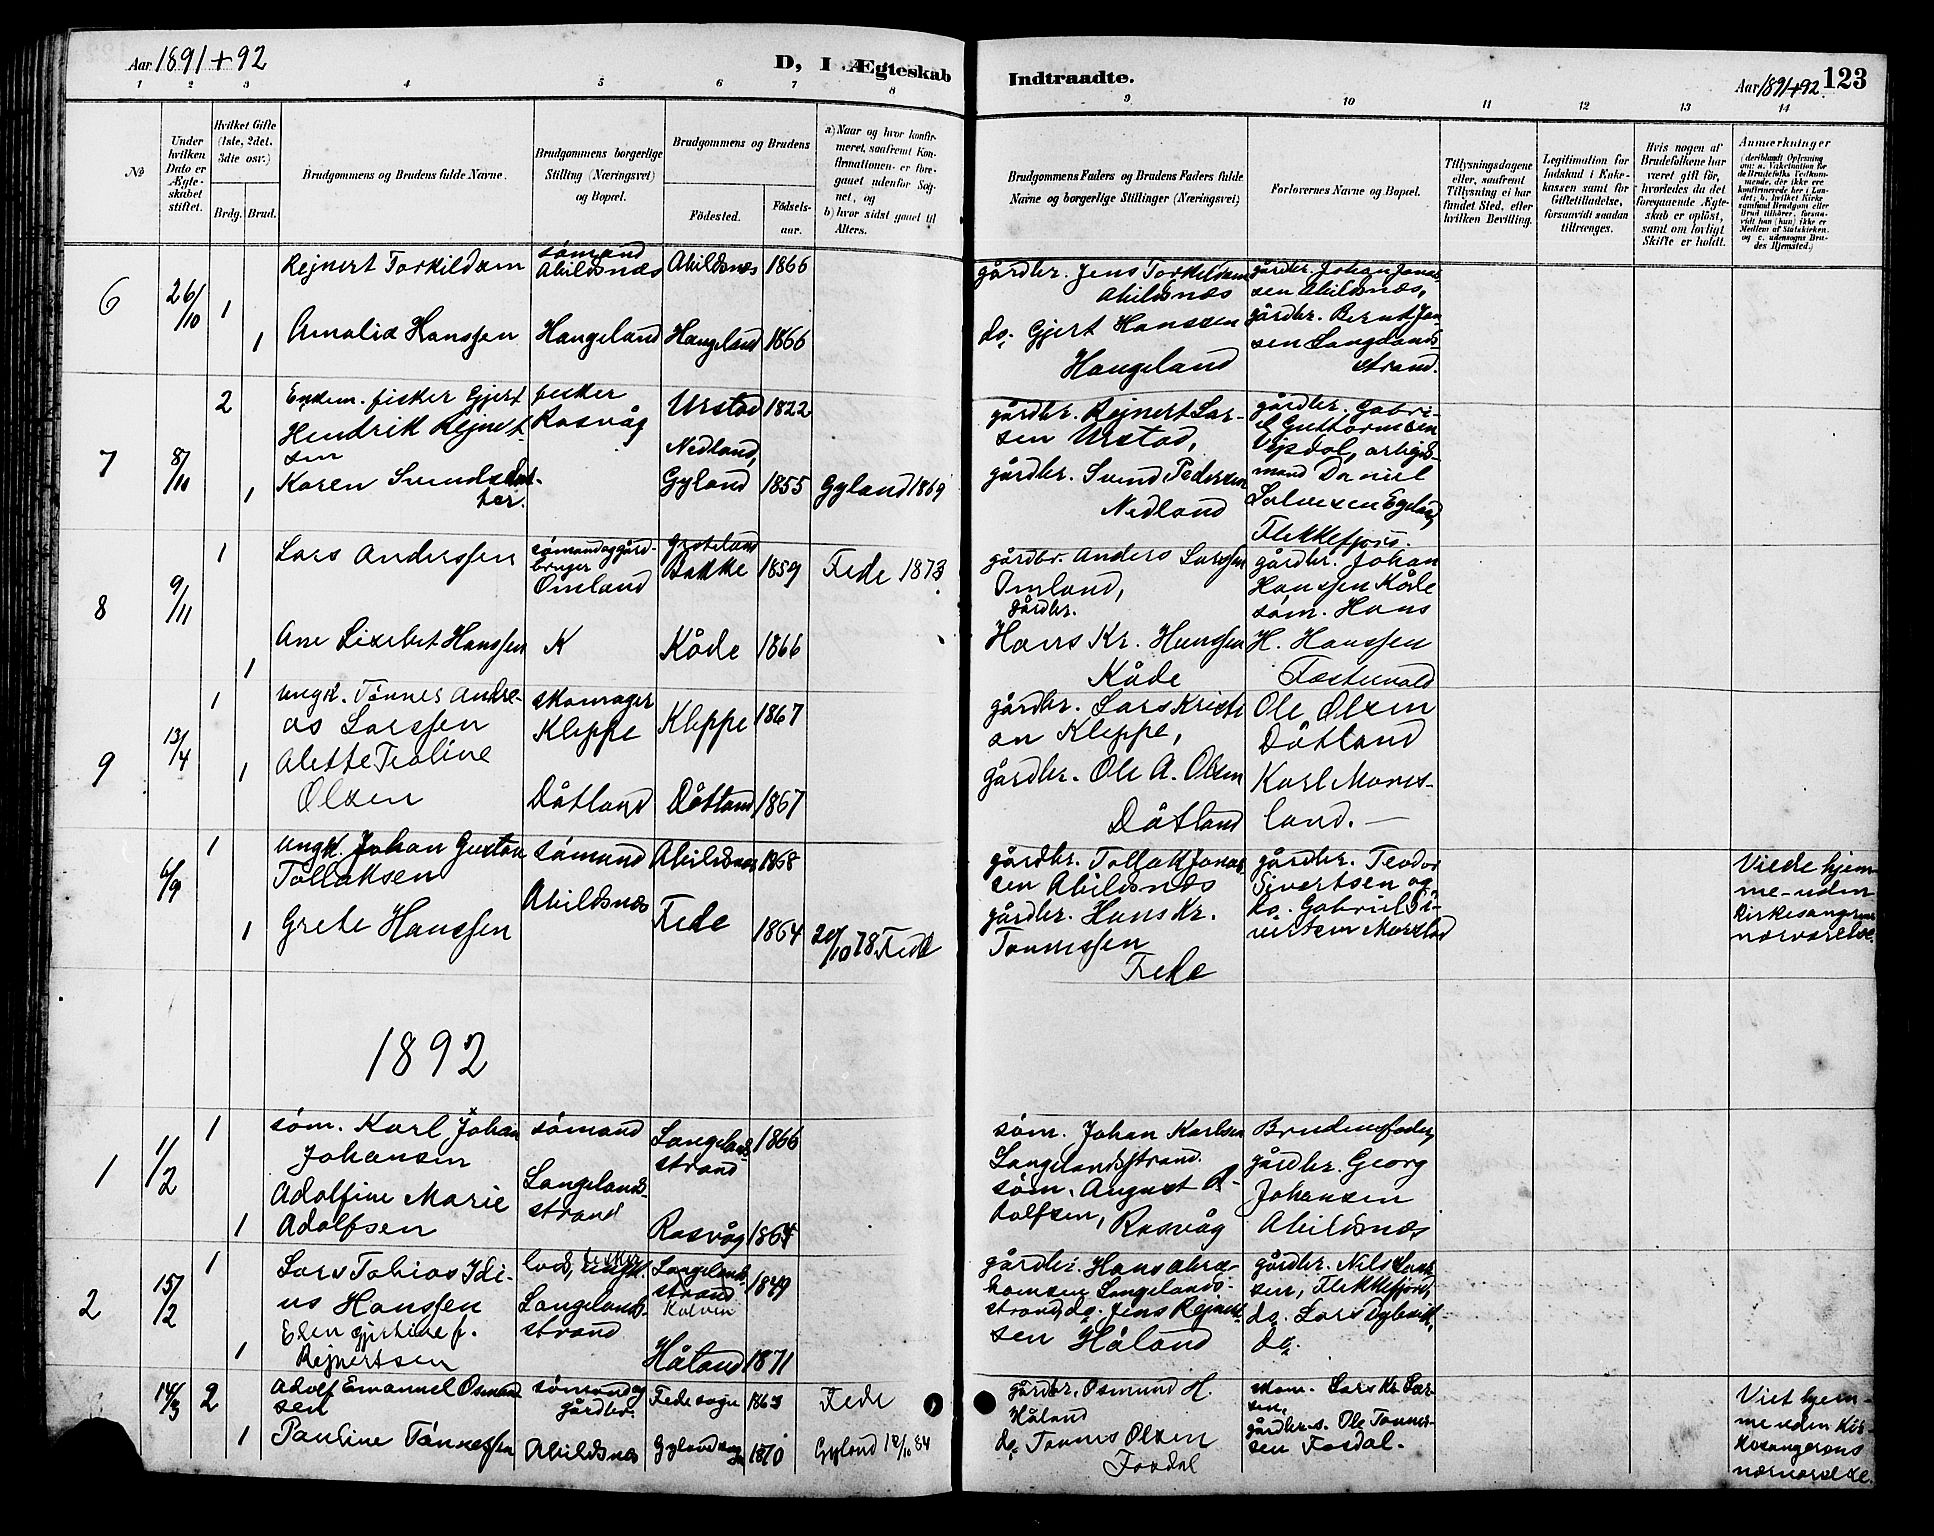 Aar 1891+92
D, I Ægteskab
Indtraadte.
Aar 1891+92. 123
1 2 3 4 5 6 7 8 9 10 11 12 13 14
No
Under hvilken Dato er Ægteskabet stiftet.
Hvilket Gifte (1ste, 2det, 3die osv.)
Brdg. Brud.
Brudgommens og Brudens fulde Navne.
Brudgommens borgerlige Stilling (Næringsvei) og Bopæl.
Brudgommens og Brudens
Födested.
Födsels-aar.
a) Naar og hvor konfirmeret, saafremt Konfirmationen er foregaaet udenfor Sognet, og
b) hvor sidst gaaet til Alters.
Brudgommens Faders og Brudens Faders fulde Navne og borgerlige Stillinger (Næringsvei)
Forlovernes Navne og Bopæl.
Tillysningsdagene eller, saafremt Tillysning ei har fundet Sted, efter hvilken Bevilling.
Legitimation for Indskud i Enkekassen samt for Giftetilladelse, forsaavidt saadan tiltrænges.
Hvis nogen af Brudefolkene har været gift før, hvorledes da det foregaaende Ægteskab er opløst, samt om lovligt Skifte er holdt.
Anmerkninger
6
26/10
1
Rejnert Torkildsen
sømand
Abildsnæs
Abildsnæs
1866
gårdbr. Jens Torkildsen
Abildsnæs
gårdbr. Johan Jonas-
sen Abildsnæs,
1
Amalia Hanssen
Haugeland
Haugeland
1866
do. Gjert Hanssen
Haugeland
gårdbr. Bernt Jan-
sen Langelands
strand.
7
8/11
2
Enkem. fisker Gjert
Hendrik Rejnert-
sen
fisker
Rasvåg
Urstad
1822
gårdbr. Rejnert Lar-
sen Urstad,
gårdbr. Gabri-
el Guttormsen
1
Karen Svendsdat-
ter.
Nedland,
Gyland
1855
Gyland 1869
gårdbr. Svend Pedersen
Nedland
mand Daniel
Salvesen Egeland
Flekkefjord.
8
9/11
1
Lars Anderssen
sømand og gård-
bruger
Omland
Bakke
1859
Fede 1873
gårdbr. Anders Larssen
Omland,
gårdbr. Johan
Hanssen Kåde
1
Ane Lisebet Hanssen
K
Kåde
1866
Gårdbr.
Hans Kr. Hanssen
Kåde
søm. Hans
H. Hanssen
9
13/4
1
ungk. Tønnes Andre-
as Larssen
skomager
Kleppe
Kleppe
1867
gårdbr. Lars Kristi
an Kleppe,
Ole Olsen
Dåtland
1
Alette Tialine
Olsen
Dåtland
Dåtland
1867
gårdbr. Ole A. Olsen
Dåtland
Karl Mones-
land.
6/9
1
ungk. Johan Gustav
Tollaksen
sømand
Abildsnæs
Abildsnæs
1868
gårdbr. Tollak Jonas-
sen Abildsnæs
gårdbr. Teodor
Sivertsen og
Viede hjem-
me uden
kirkesangerens
nærværelse.
1
Grete Hanssen
Fede
1864
20/10 78. Fede
gårdbr. Hans Kr.
Tønnessen
Fede
do. Gabriel Si-
vertsen
1892
1
11/2
1
søm. Karl Johan
Johansen
sømand
Langelands-
strand
Langelands-
strand
1866
søm. Johan Karlsen
Langelandsstrand.
Brudens fader,
gårdbr. Georg
Johansen
Abildsnæs
1
Adolfine Marie
Adolfsen
Rasvåg
1864
søm. August A-
dolfsen, Rasvåg
2
15/2
1
Lars Tobias Idi-
us Hanssen
Langelands-
strand
Langelands-
strand
1849
gårdbr. Hans Abra-
hamsen Langelands-
strand, do. Jens Rejnert-
sen Håland
gårdbr. Nils
sen, Flekkefjord,
do. Lars
do.
1
Elen Gjertine f.
Rejnertsen
Håland
1871
14/3
2
Adolf Emanuel Osmund
sen
sømand og
gårdbr.
Fede sogn
1863
Fede
gårdbr. Osmund H.
Håland
skom. Lars Kr. Lar-
sen,
Viet hjem-
me uden Kir-
kesangerens
nærværelse.
1
Pauline Tønnessen
Abildsnæs
Gyland sogn
1870
Gyland 12/10 84
do. Tønnes Olsen
Fosdal
gårdbr. Ole Tønnes-
sen Fosdal.